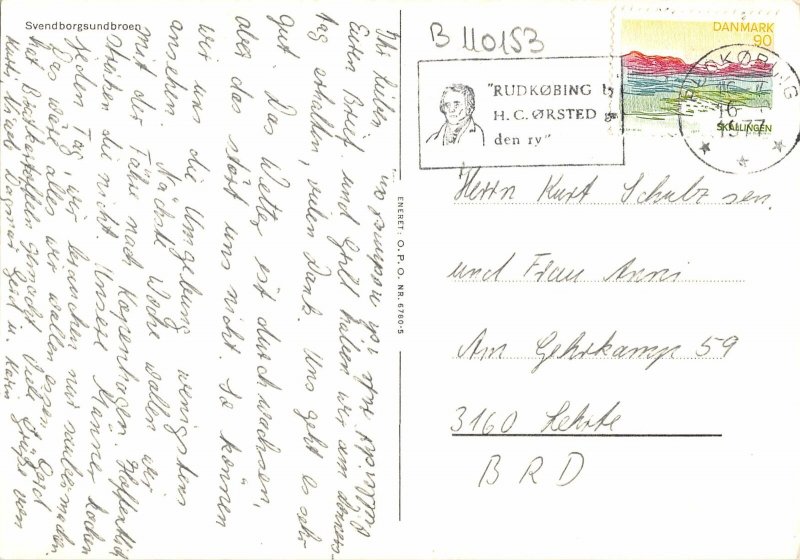 Svendborgsundbroen
Ihr Lieben
Euren Brief und Geld haben wir am Donners
tag erhalten, vielen Dank. Uns geht es sehr
gut. Das Wetter ist durchwachsen,
aber das stört uns nicht. So können
wir uns die Umgebung wenigstens
ansehen. Nächste Woche wollen wir
mit der Fähre nach Kopenhagen. Hoffentlich
streiken die nicht. Unsere Männer kochen
jeden Tag, wir brauchen nur saubermachen
Das wär alles wir wollen essen. Gerd
hat Bratkartoffeln gemacht. Viele Grüße von
Kurti, Dagmar Gerd u. Karin
ENERET: O.P.O. NR. 6780-5
B 110153
"RUDKØBING
H. C. ØRSTED
den ry"
DANMARK
90
SKALLINGEN
RUDKØBING
16
1977
Herrn Kurt Schulz sen.
und Frau Anni
Am Gehrkamp 59
3160 Lehrte
BRD